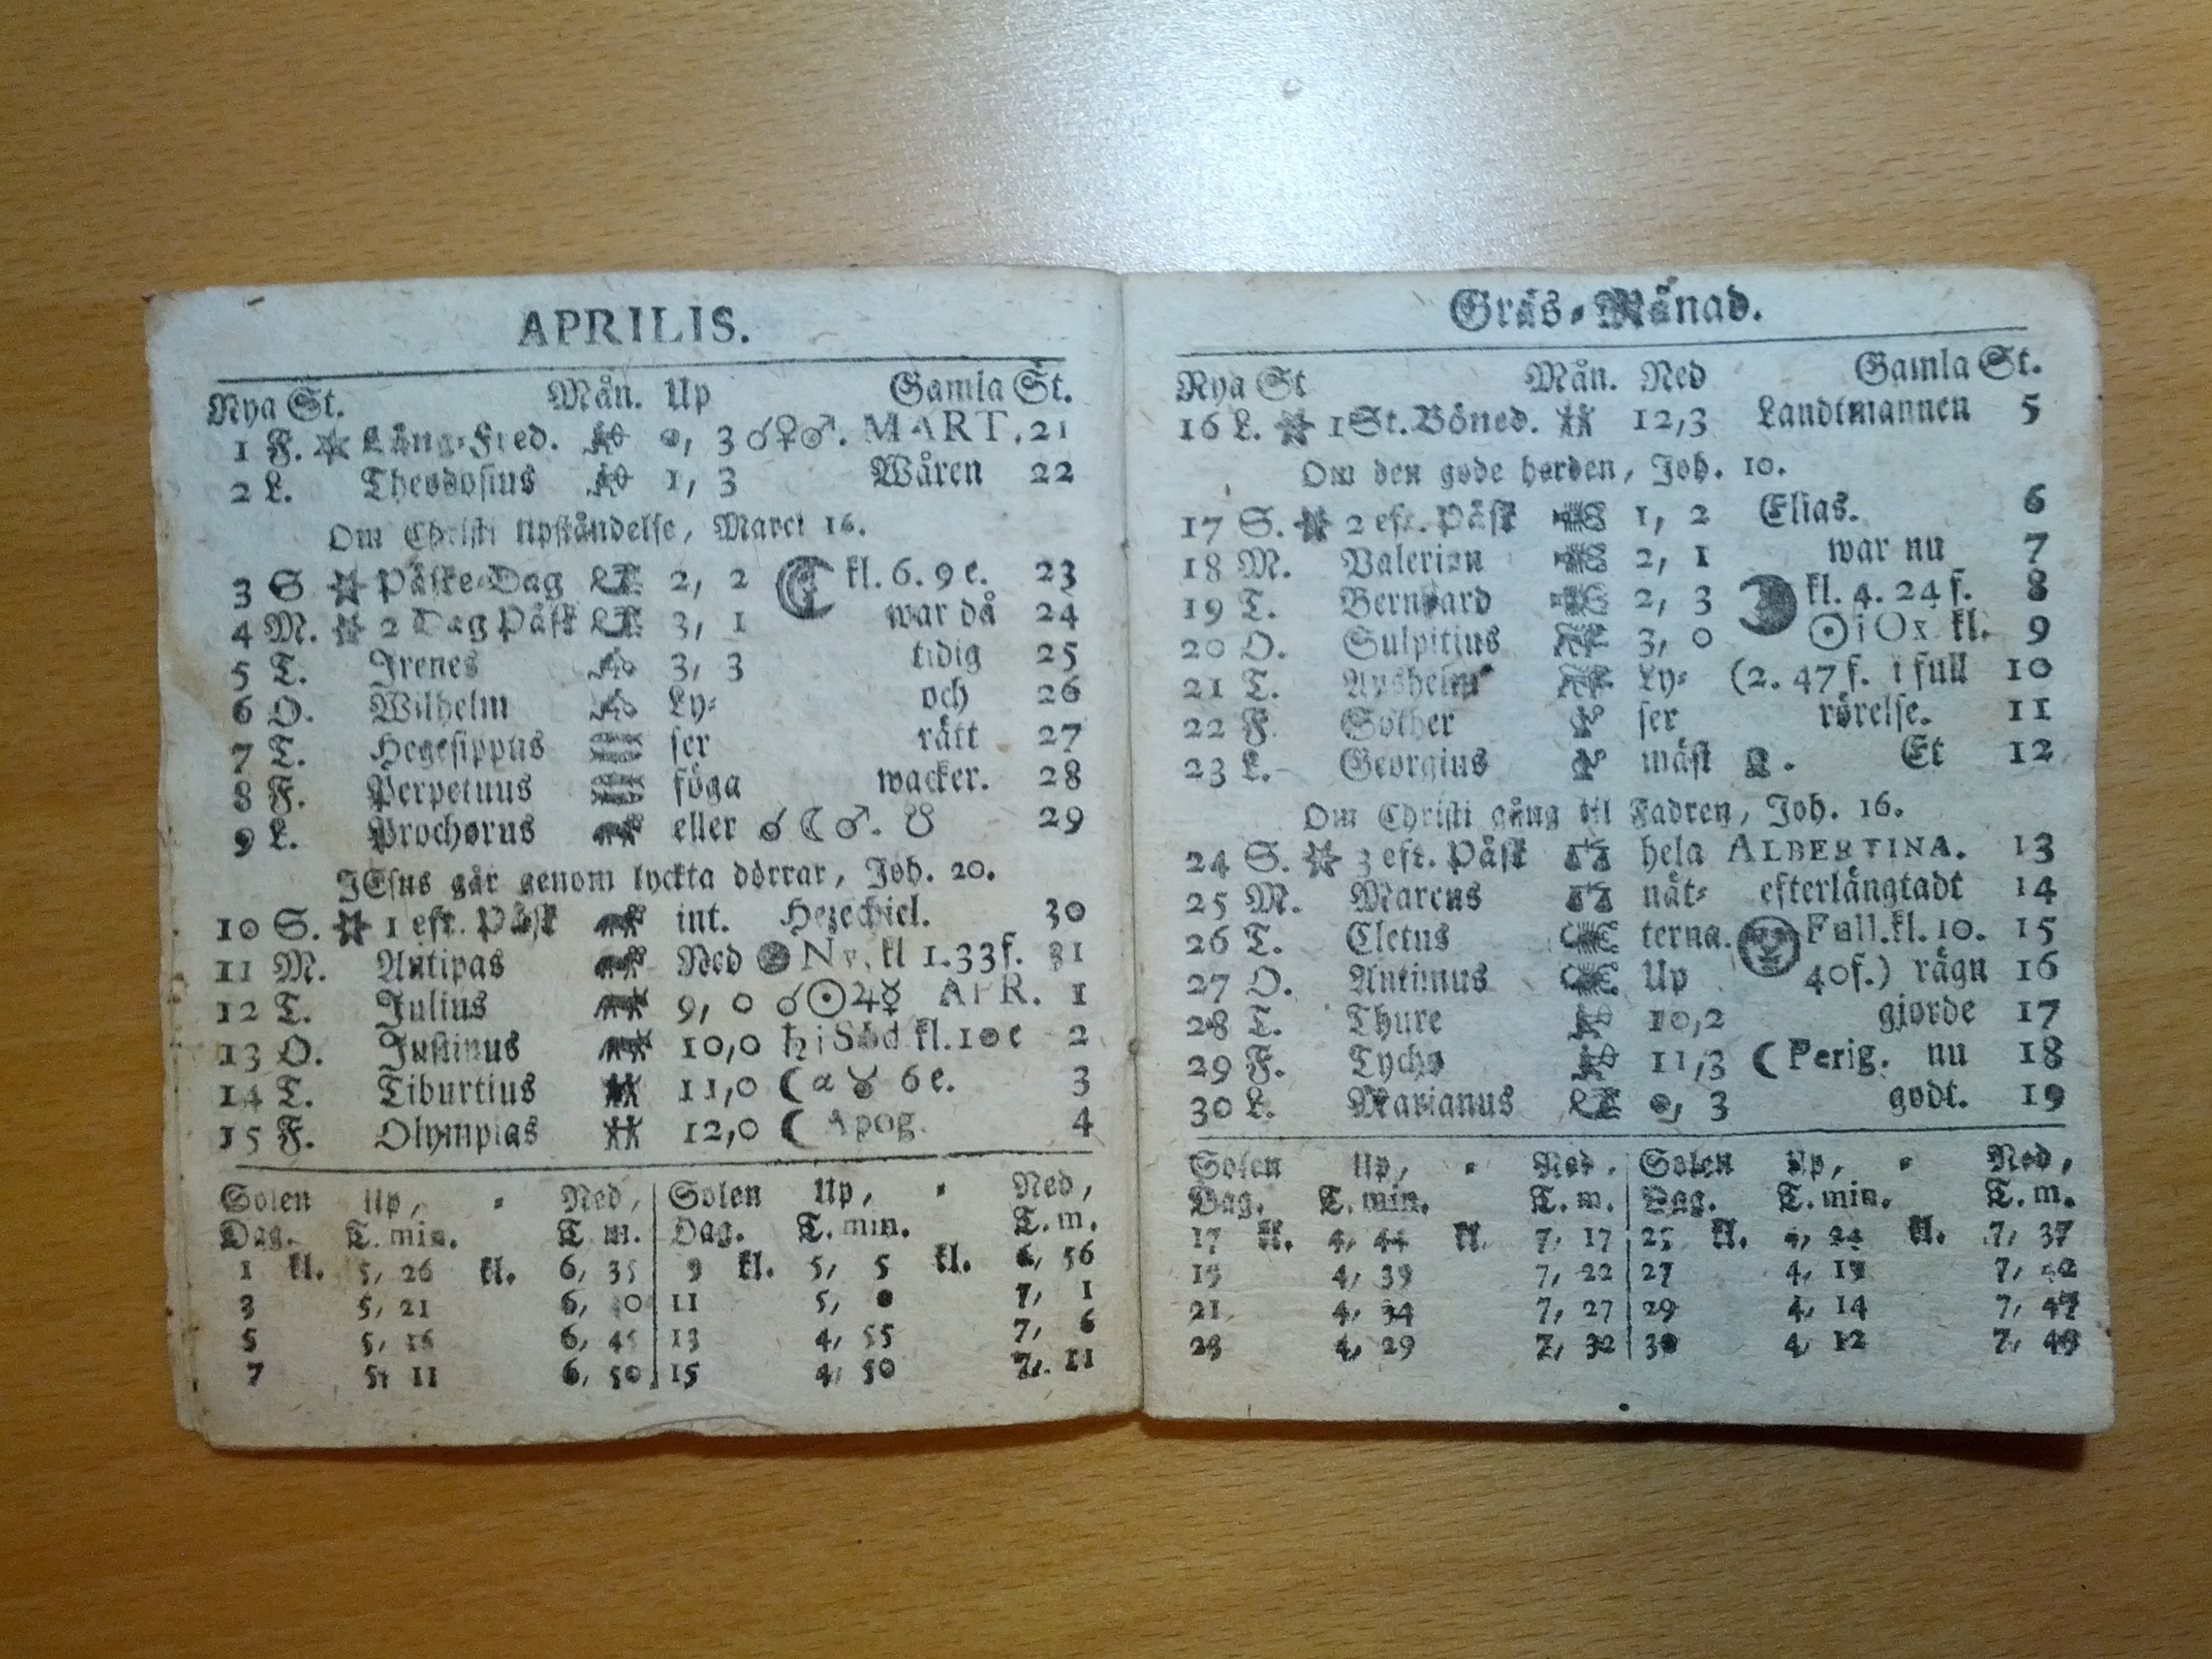 APRILIS.
Nya St. Mån. Up Gamla St.
1 F. Lång-Fred. 3 ☌♀♂. MART. 21
2 L. Theodosius 1, 3 Wåren 22
Om Christi Upståndelse, Marci 16.
3 S Påske-Dag 2, 2 kl. 6. 9 e. 23
4 M. 2 Dag Påsk 3, 1 war då 24
5 T. Irenes 3, 3 tidig 25
6 O. Wilhelm Ly- och 26
7 T. Hegesippus ser rätt 27
8 F. Perpetuus föga wacker. 28
9 L. Prochorus eller ☌ ☾ ♂. ☋ 29
JEsus går genom lyckta dörrar, Joh. 20.
10 S. 1 eft. Påsk int. Hezechiel. 30
11 M. Antipas Ned Ny. kl 1.33 f. 31
12 T. Julius 9, 0 ☌☉♃☿ APR. 1
13 O. Justinus 10,0 ♄ i Söd kl. 10 e 2
14 T. Tiburtius 11,0 ☾ α ♉ 6 e. 3
15 F. Olympias 12,0 ☾ Apog. 4
Solen Up, Ned, Solen Up, Ned,
Dag. T. min. T. m. Dag. T. min. T. m.
1 kl. 5, 26 kl. 6, 35 9 kl. 5, 5 kl. 6, 56
3 5, 21 6, 40 11 5, 0 7, 1
5 5, 16 6, 45 13 4, 55 7, 6
7 5, 11 6, 50 15 4, 50 7, 11
Gräs-Månad.
Nya St Mån. Ned Gamla St.
16 L. 1 St. Böned. 12,3 Landtmannen 5
Om den gode herden, Joh. 10.
17 S. 2 eft. Påsk 1, 2 Elias. 6
18 M. Valerian 2, 1 war nu 7
19 T. Bernhard 2, 3 kl. 4. 24 f. 8
20 O. Sulpitius 3, 0 ☉ i Ox kl. 9
21 T. Anshelm Ly- (2. 47 f. i full 10
22 F. Sother ser rörelse. 11
23 L. Georgius mäst ☊. Et 12
Om Christi gång til Fadren, Joh. 16.
24 S. 3 eft. Påsk hela ALBERTINA. 13
25 M. Marcus nät- efterlängtadt 14
26 T. Cletus terna. Full. kl. 10. 15
27 O. Antimus Up 40 f.) rägn 16
28 T. Thure 10,2 gjorde 17
29 F. Tycho 11,3 ☾ Perig. nu 18
30 L. Marianus 0, 3 godt. 19
Solen Up, Ned, Solen Up, Ned,
Dag. T. min. T. m. Dag. T. min. T. m.
17 kl. 4, 44 kl. 7, 17 25 kl. 4, 24 kl. 7, 37
19 4, 39 7, 22 27 4, 19 7, 42
21 4, 34 7, 27 29 4, 14 7, 47
23 4, 29 7, 32 30 4, 12 7, 49